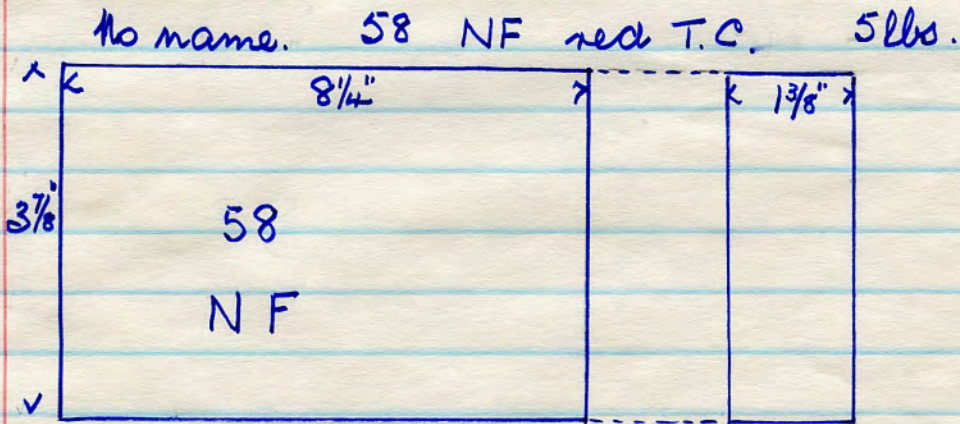 No name. 58 NF red T.C. 5lbs.
8 1/4" 1 3/8"
3 7/8"
58
N F